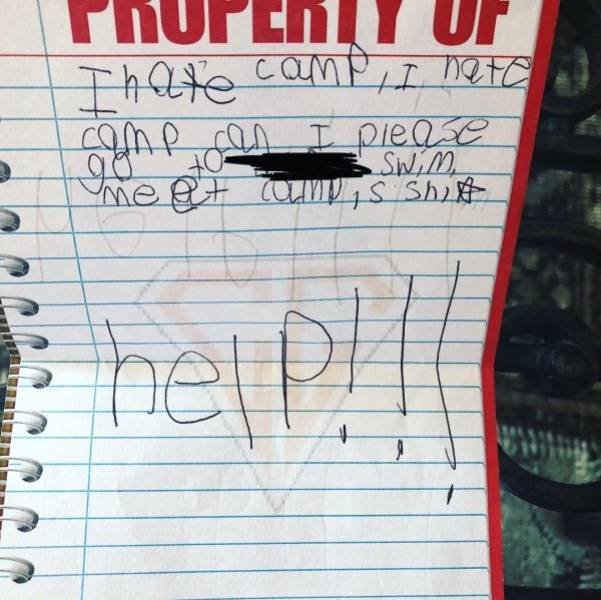 PROPERTY OF
I hate camp, I hate
camp can I please
go to swim
meet camp,s shit
help!!!